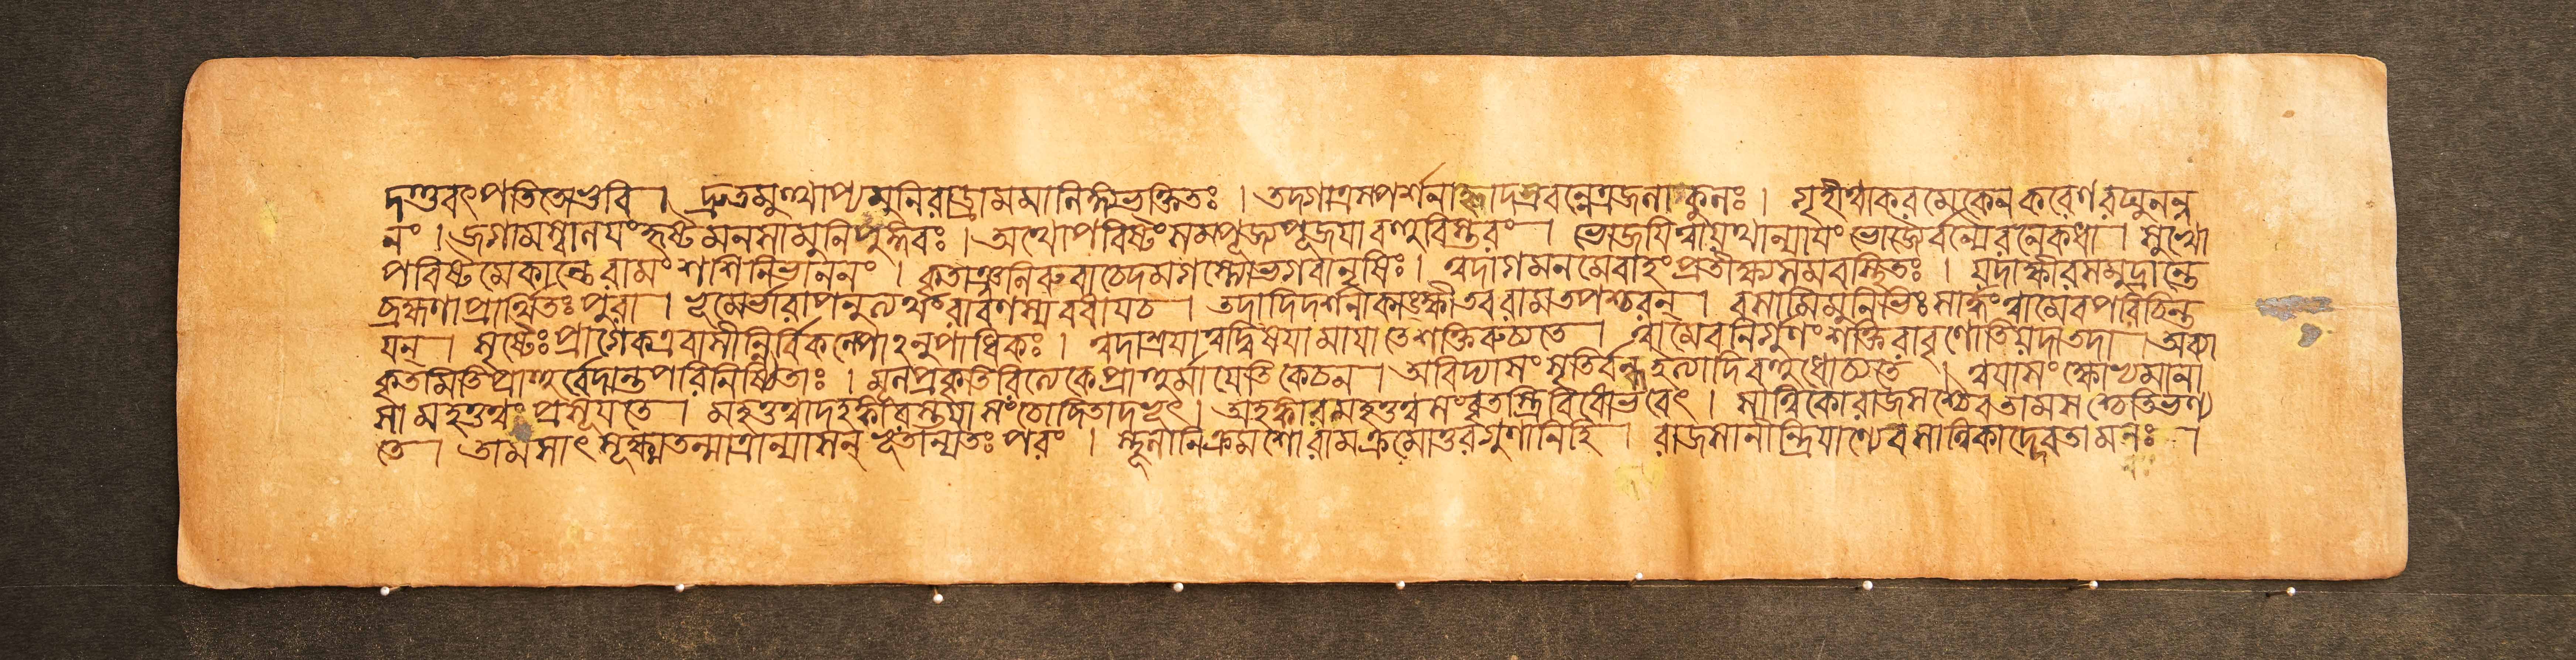 দণ্ডবৎপতিতোভুবি । দ্রুতমুত্থাপ্যমুনিরাড্রামমালিঙ্গ্যভক্তিতঃ । তদ্গাত্রস্পর্শনাহ্লাদস্রবন্নেত্রজলাকুলঃ । গৃহীত্বাকরমেকেনকরেণরঘুনন্দ
নং । জগামস্বাশ্রমংহৃষ্টমনসামুনিপুঙ্গবঃ । অথোপবিষ্টংসম্পূজ্যপূজয়াবহুবিস্তরং । ভোজয়িত্বাযথান্যায়ংভোজ্যৈর্বন্যৈরনেকধা । সুখো
পবিষ্টমেকান্তেরামংশশিনিভাননং । কৃতাঞ্জলিরুবাচেদমগস্ত্যোভগবানৃষিঃ । ত্বদাগমনমেবাহংপ্রতীক্ষ্যসমবস্থিতঃ । যদাক্ষীরসমুদ্রান্তে
ব্রহ্মণাপ্রার্থিতঃপুরা । ভূমের্ভারাপনুত্যর্থংরাবণস্যবধায়চ । তদাদিদর্শনাকাঙ্ক্ষীতবরামতপশ্চরন্ । বসামিমুনিভিঃসার্দ্ধংত্বামেবপরিচিন্ত
য়ন্ । সৃষ্টেঃপ্রাগেকএবাসীন্নির্বিকল্পোঽনুপাধিকঃ । ত্বদাশ্রয়াত্বদ্বিষয়ামায়াতেশক্তিরুচ্যতে । ত্বামেবনির্গুণংশক্তিরাবৃণোতিযদাতদা । অব্যা
কৃতমিতিপ্রাহুর্বেদান্তপরিনিষ্ঠিতাঃ । মূলপ্রকৃতিরিত্যেকেপ্রাহুর্মায়েতিকেচন । অবিদ্যাসংসৃতির্বন্ধইত্যাদিবহুধোচ্যতে । ত্বয়াসংক্ষোভ্যমাণা
সামহত্তত্ত্বংপ্রসূয়তে । মহত্তত্ত্বাদহঙ্কারস্ত্বয়াসংচোদিতাদভূৎ । অহঙ্কারমহত্তত্ত্বসংবৃতস্ত্রিবিধোভবেৎ । সাত্ত্বিকোরাজসশ্চৈবতামসশ্চেতিভণ্য
তে । তামসাৎসূক্ষ্মতন্মাত্রাণ্যাসন্ভূতান্যতঃপরং । স্থূলানিক্রমশোরামক্রমোত্তরগুণানিহি । রাজসানীন্দ্রিয়াণ্যেবসাত্ত্বিকাদ্দেবতামনঃ ।